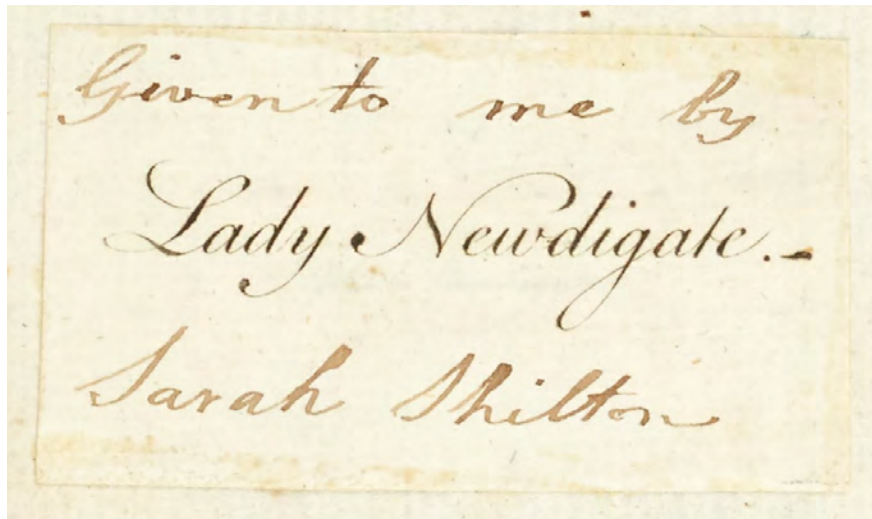 Given to me by
Lady Newdigate.-
Sarah Shilton